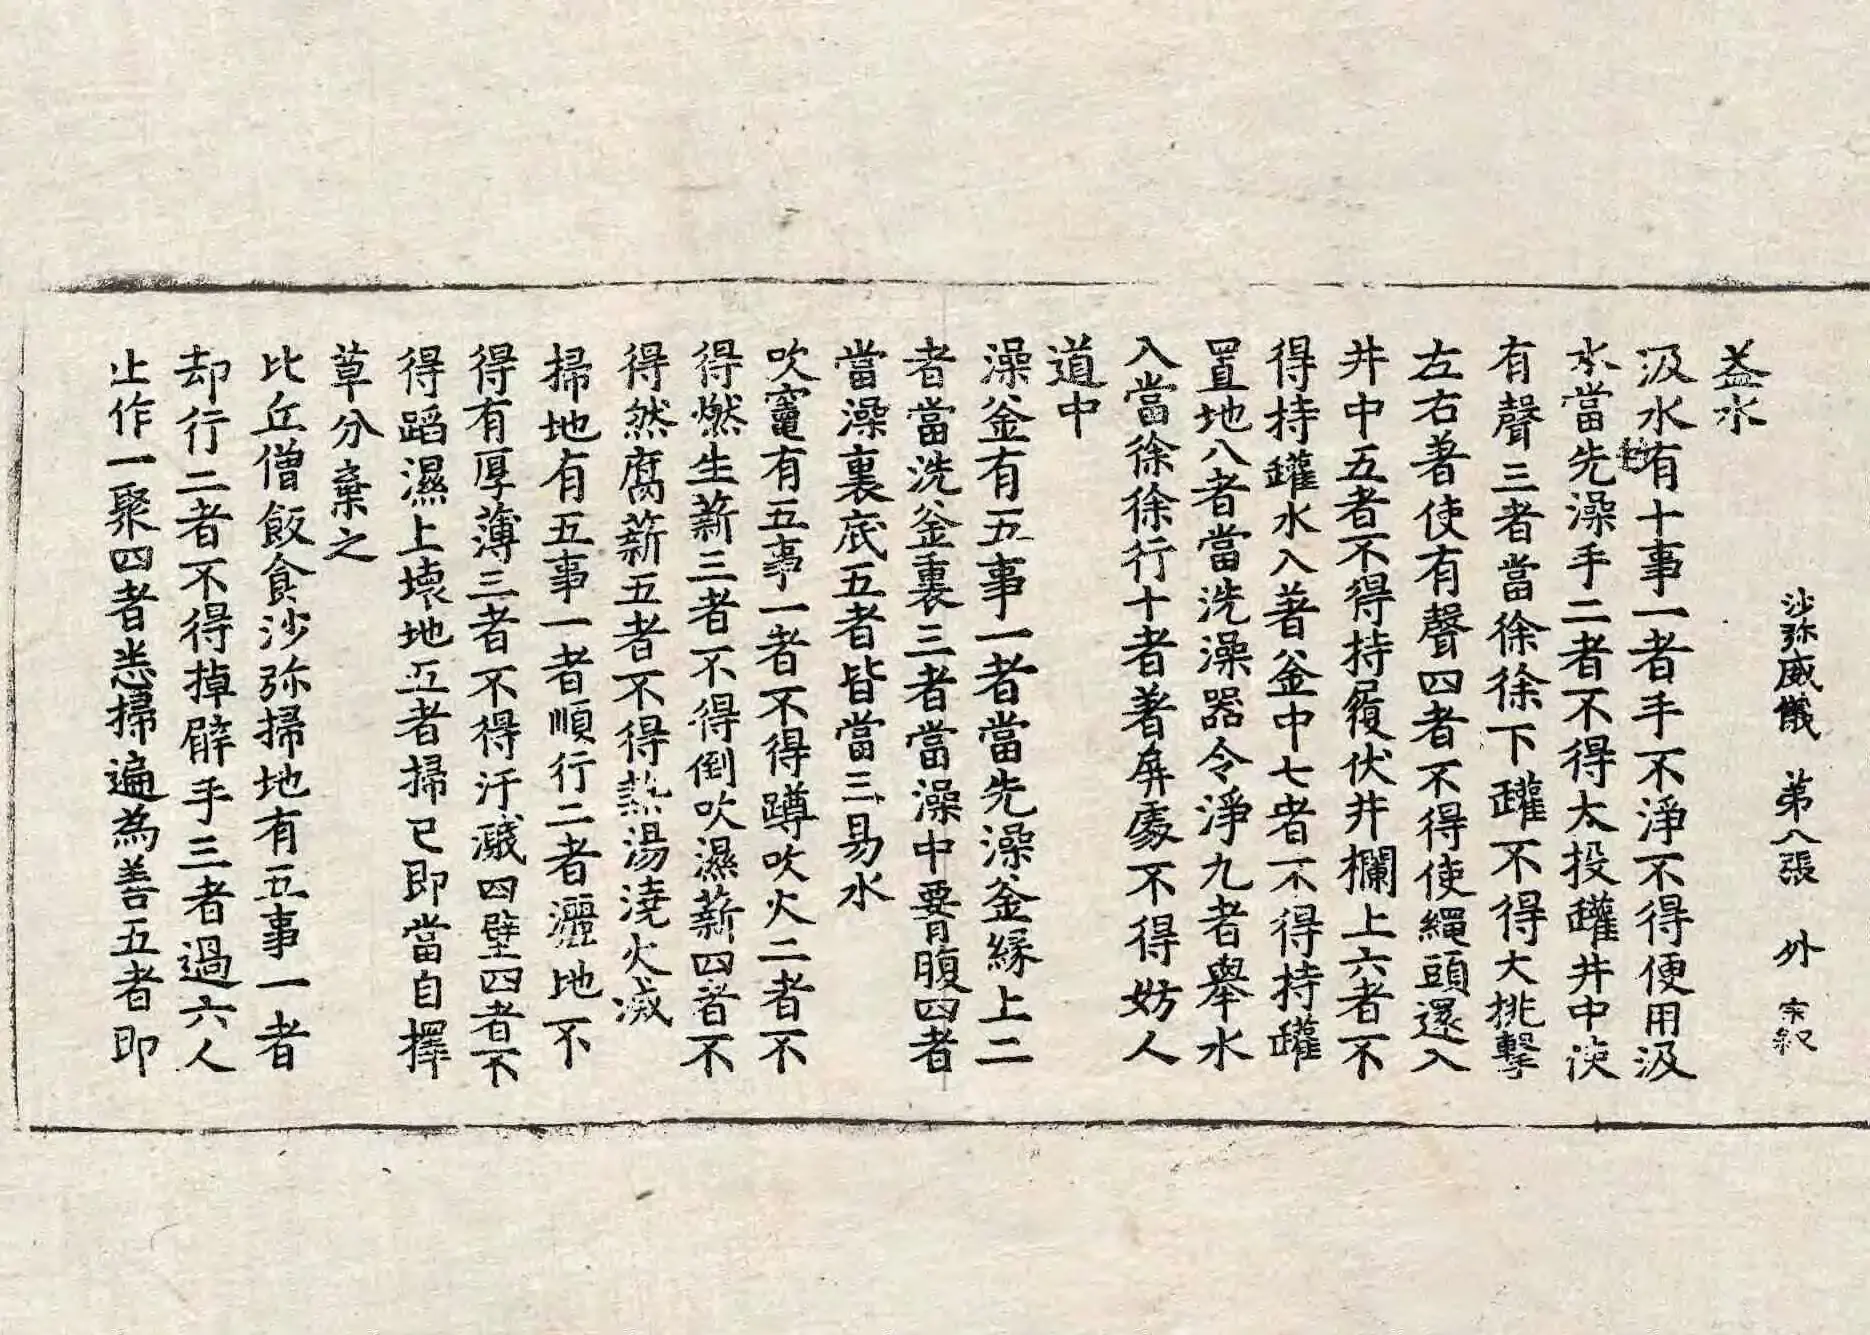 沙弥威儀　第八張　外　宗叙
益水
汲水有十事一者手不淨不得便用汲
水當先澡手二者不得大投罐井中使
有聲三者當徐徐下罐不得大挑擊
左右著使有聲四者不得使繩頭還入
井中五者不得持履伏井欄上六者不
得持罐水入著釜中七者不得持罐
置地八者當洗澡器令淨九者舉水
入當徐徐行十者著屏處不得妨人
道中
澡釜有五事一者當先澡釜緣上二
者當洗釜裏三者當澡中要腹四者
當澡裏底五者皆當三易水
吹竈有五事一者不得蹲吹火二者不
得燃生薪三者不得倒吹濕薪四者不
得然腐薪五者不得熱湯澆火滅
掃地有五事一者順行二者灑地不
得有厚薄三者不得汙濺四壁四者不
得蹈濕上壞地五者掃已即當自擇
草分棄之
比丘僧飯食沙弥掃地有五事一者
却行二者不得掉臂手三者過六人
止作一聚四者悉掃遍為善五者即